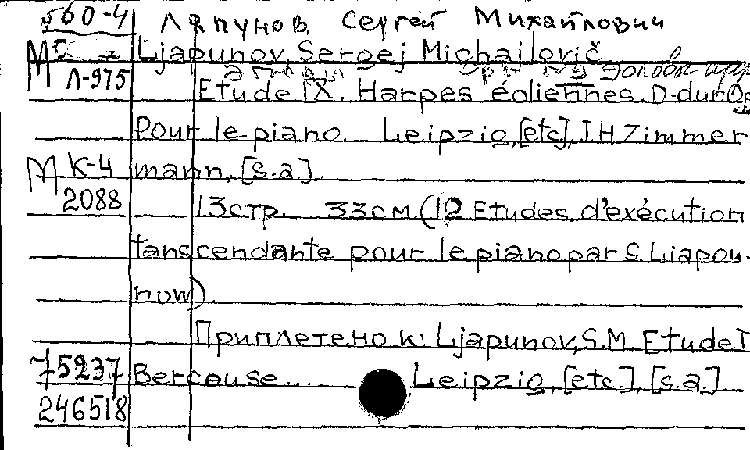 560-4 Ляпунов, Сергей Михайлович
Ljapunov, Sergej Michailovič
Л-975
Etude IX. Harpes éoliennes. D-dur Op
Pour le piano. Leipzig, [etc], J.H. Zimmer
М К-4 mann, [s.a].
2088 13стр. 33см (12 Etudes d'exécution
tanscendante pour le piano par S. Liapou-
now).
Приплетено к: Ljapunov, S.M. Etude I
75237 Berceuse... Leipzig, [etc], [s.a]
246518